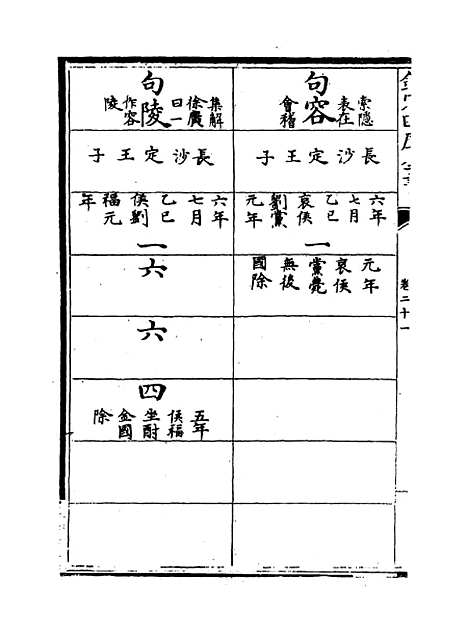 卷二十一
句容
索隱
表在
會稽
長沙定王子
六年
七月
乙巳
哀侯
劉黨
元年
一
元年
哀侯
黨薨
無後
國除
句陵
集解
徐廣
曰一
作容
陵
長沙定王子
六年
七月
乙巳
侯劉
福元
年
一
六
六
四
五年
侯福
坐酎
金國
除